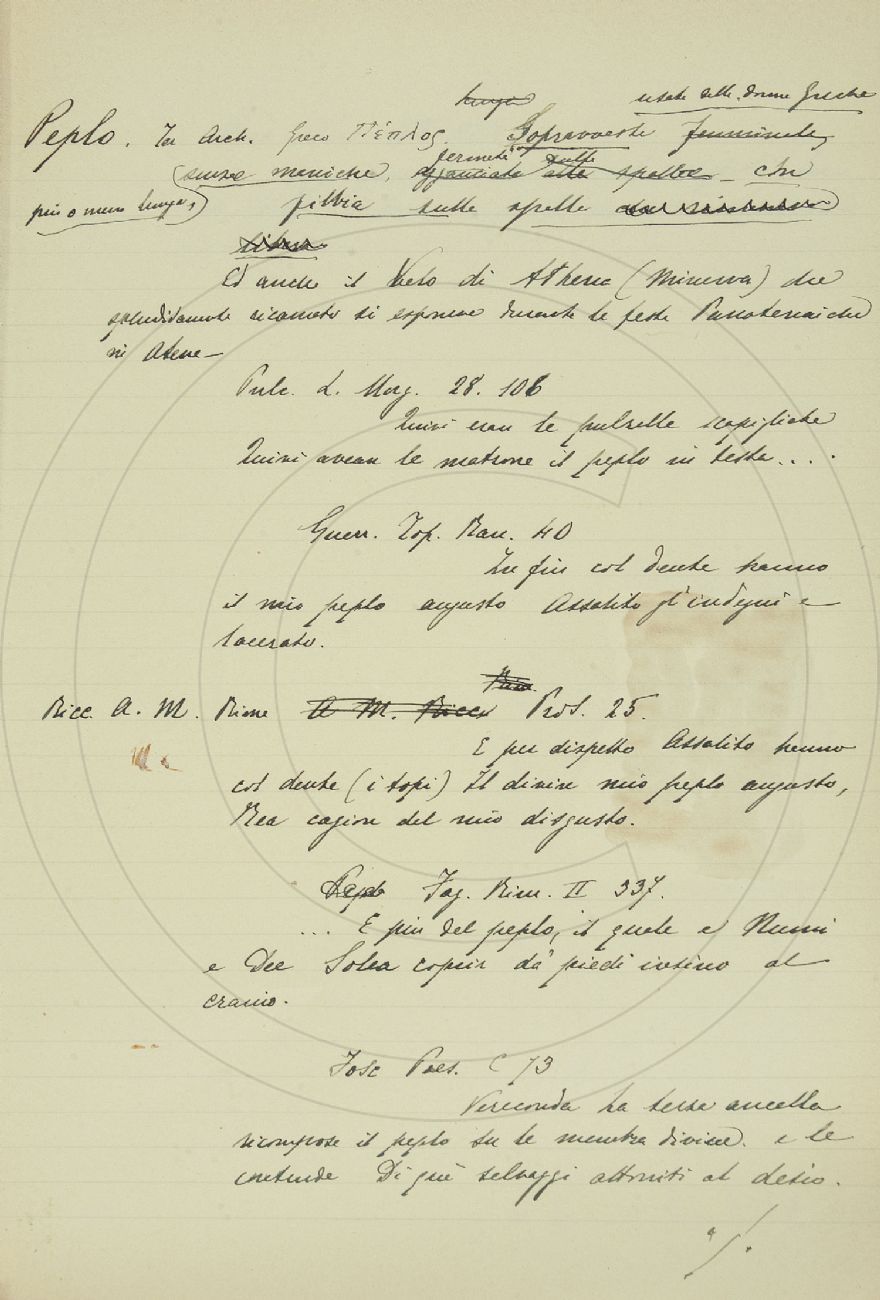 lunga usata dalle donne Greche
Peplo. Ter. Arch. Greco Πέπλος. Sopravveste femminile,
fermata sulle
(senza maniche, agganciata alle spalle – con
più o meno lunga,) fibbia sulle spalle
Ed anche il Velo di Athena (Minerva) che
splendidamente ricamato si esponeva durante le feste Panatenaiche
in Atene –
Pulc. L. Morg. 28. 106
Quivi eran le pulzelle scapigliate
Quivi avean le matrone il peplo in testa....
Guerr. Top. Ran. 40
In fin col dente hanno
il mio peplo augusto Assalito gl'indegni e
lacerato.
Ricc. A. M. Rime A. M. Ricci Pros. 25.
E per dispetto Assalito hanno
col dente (i topi) Il divin mio peplo augusto,
Rea cagion del mio disgusto.
Fag. Rim. II 337.
... E più del peplo, il quale a' Numi
e Dee Solea coprir da' piedi insino al
cranio.
Fosc Poes. C 73
Vereconda la terza ancella
ricompose il peplo su le membra divine. e le
contende Di què selvaggi attoniti al desio.